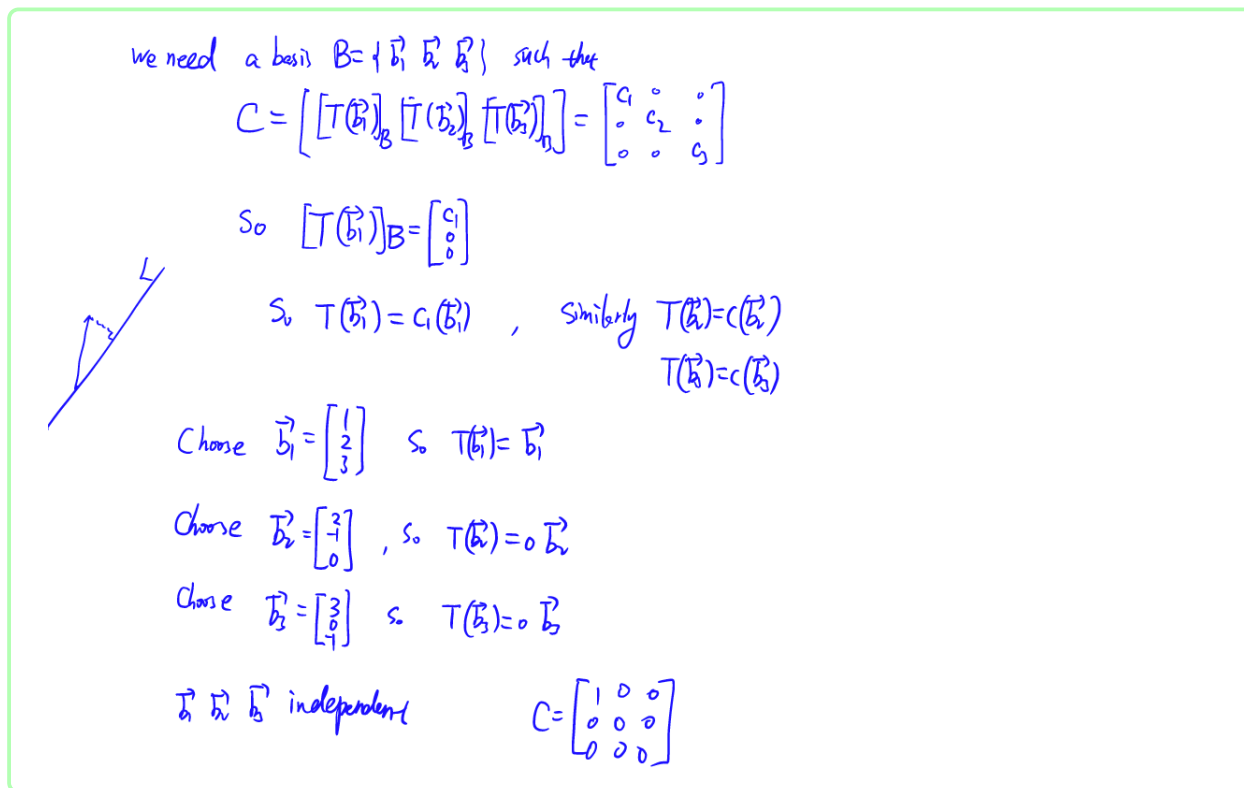 we need a basis B={b⃗₁ b⃗₂ b⃗₃} such that
C = [[T(b⃗₁)]_B [T(b⃗₂)]_B [T(b⃗₃)]_B] = [c₁ 0 0; 0 c₂ 0; 0 0 c₃]
So [T(b⃗₁)]_B = [c₁; 0; 0]
L
So T(b⃗₁) = c₁(b⃗₁) , Similarly T(b⃗₂)=c(b⃗₂)
T(b⃗₃)=c(b⃗₃)
Choose b⃗₁ = [1; 2; 3] So T(b⃗₁) = b⃗₁
Choose b⃗₂ = [2; -1; 0] , So T(b⃗₂) = 0 b⃗₂
Choose b⃗₃ = [3; 0; -1] So T(b⃗₃) = 0 b⃗₃
b⃗₁ b⃗₂ b⃗₃ independent C = [1 0 0; 0 0 0; 0 0 0]